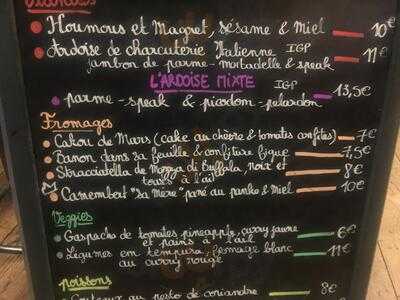 Viandes
Houmous et Magret, sésame & Miel 10€
Ardoise de charcuterie Italienne IGP 11€
jambon de parme - mortadelle & speak
L'ARDOISE MIXTE IGP
parme - speak & picodom - pelardon 13,5€
Fromages
Cakou de Mars (cake au chèvre & tomates confites) 7€
Banon dans sa feuille & confiture figue 7,5€
Stracciatella de Mozza di Buffala, noix et 8€
toasts à l'ail
Camembert "sa Mère" pané au panko & Miel 10€
Veggies
Gaspacho de tomates, pineapple, curry jaune 6€
et pains à l'ail
Légumes en tempura, fromage blanc 11€
au curry rouge
poissons
au pesto de coriandre 8€